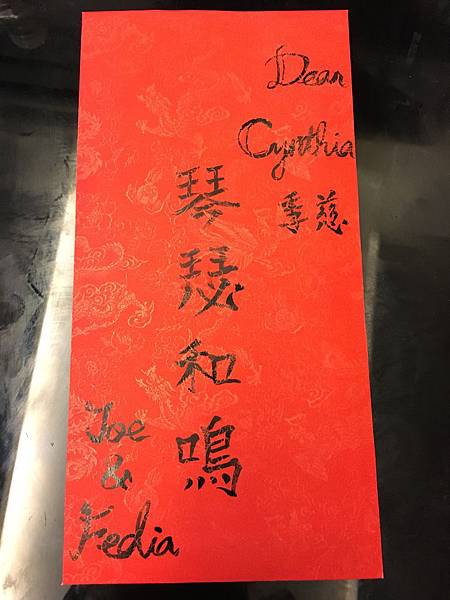 Dear
Cynthia
季慈
琴瑟和鳴
Joe
&
Fedia